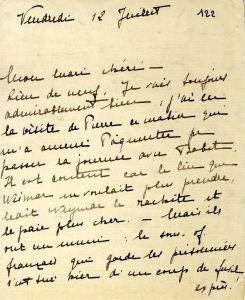 Vendredi 12 Juillet 122
Mon mari chéri —
Rien de neuf. Je vais toujours
admirablement bien, j'ai eu
la visite de Pierre ce matin qui
m'a amené Paquerette pr
passer la journée avec Babet.
Il est content car le lieu que
Weimar ne voulait plus prendre,
Weymar le rachète et
le paie plus cher. — Mais ils
ont un ennui : le sous. of.
français qui garde les prisonniers
s'est tué hier d'un coup de fusil
exprès!